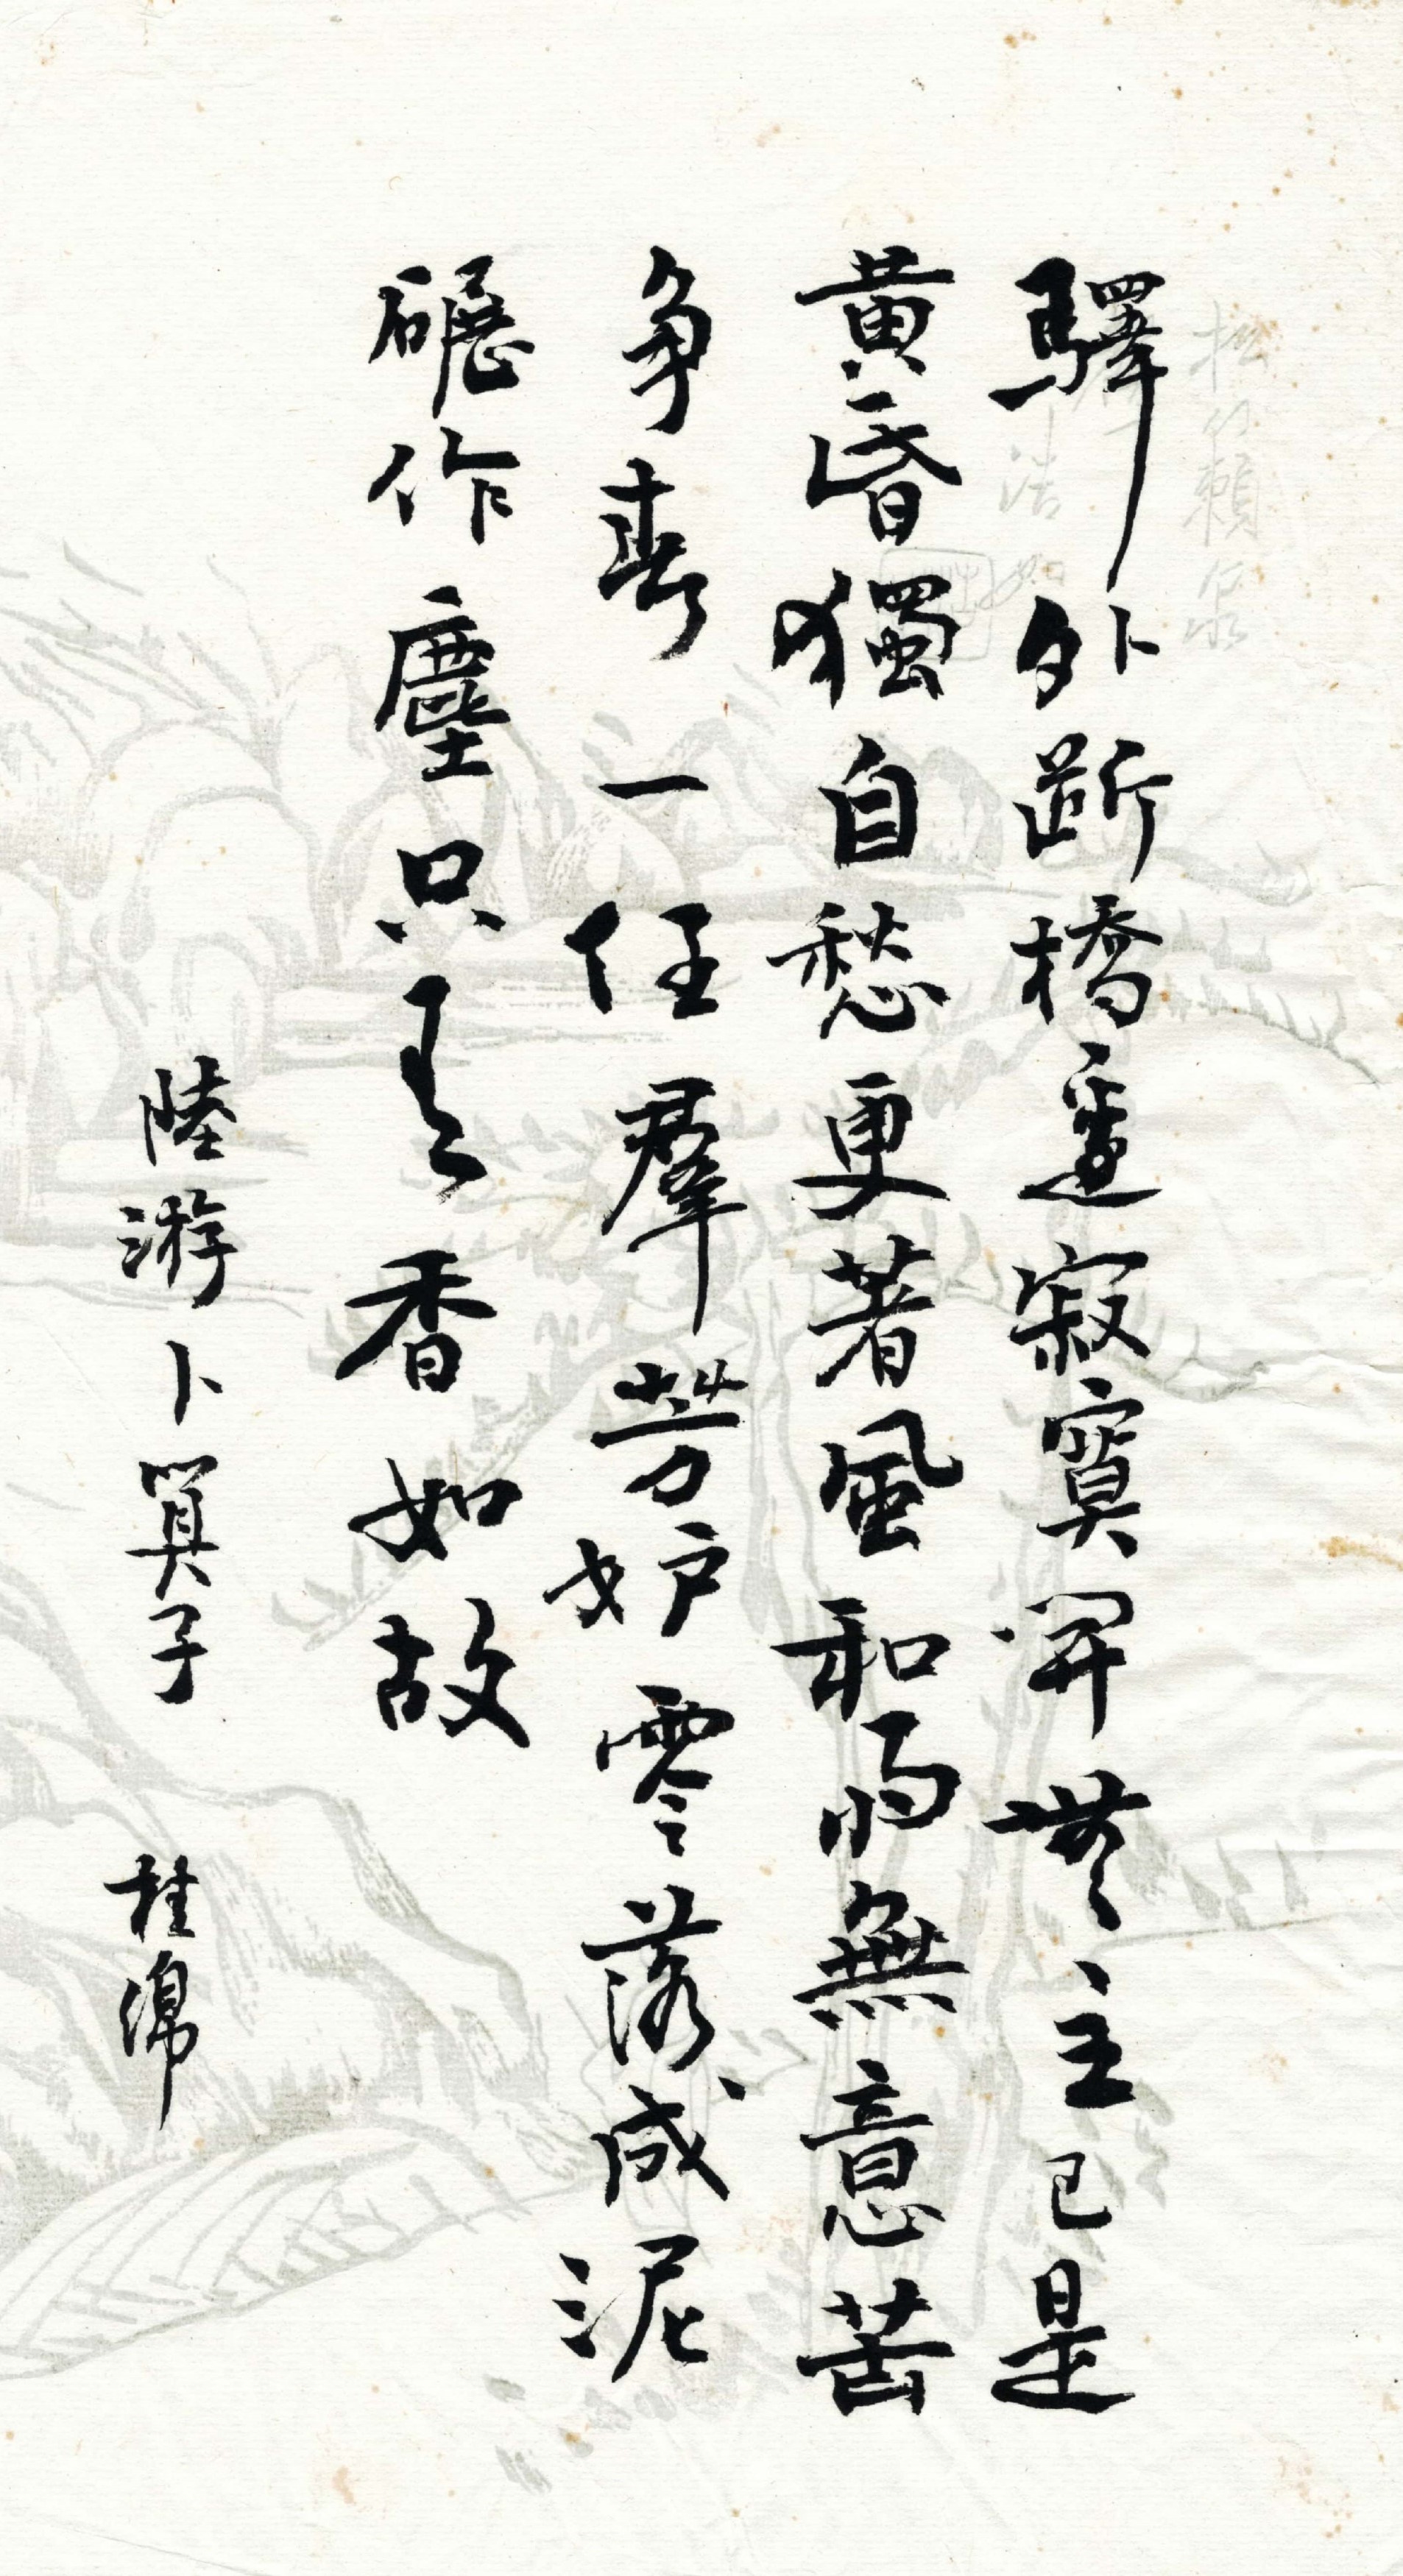 驛外斷橋邊寂寞開無主已是
黃昏獨自愁更著風和雨無意苦
爭春一任羣芳妒零落成泥
碾作塵只有香如故
陸游卜算子
桂綿